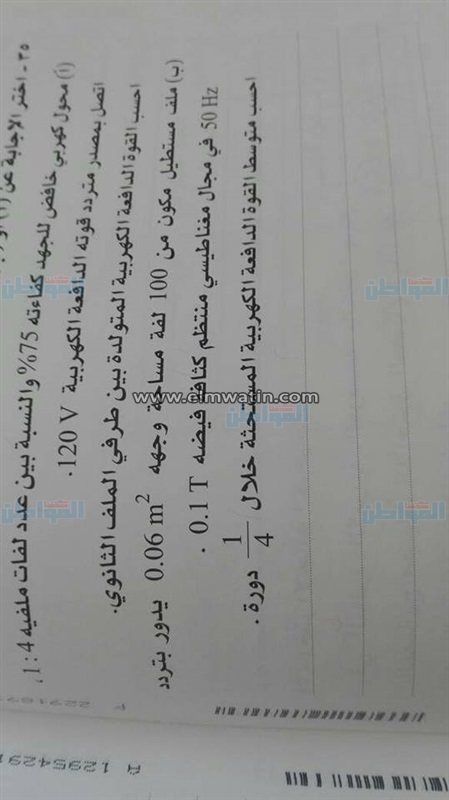 ٣٥ - اختر الإجابة عن (أ) أو
(أ) محول كهربي خافض للجهد كفاءته 75% والنسبة بين عدد لفات ملفيه 4 : 1 ،
اتصل بمصدر متردد قوته الدافعة الكهربية 120 V .
احسب القوة الدافعة الكهربية المتولدة بين طرفي الملف الثانوي.
(ب) ملف مستطيل مكون من 100 لفة مساحة وجهه 0.06 m² يدور بتردد
50 Hz في مجال مغناطيسي منتظم كثافة فيضه 0.1 T .
احسب متوسط القوة الدافعة الكهربية المستحثة خلال 1/4 دورة .
www.elmwatin.com
المواطن
المواطن
المواطن
المواطن
المواطن
المواطن